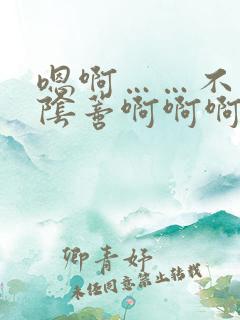 嗯啊……不
陰蒂啊啊啊
卿青妤
未经同意禁止转载